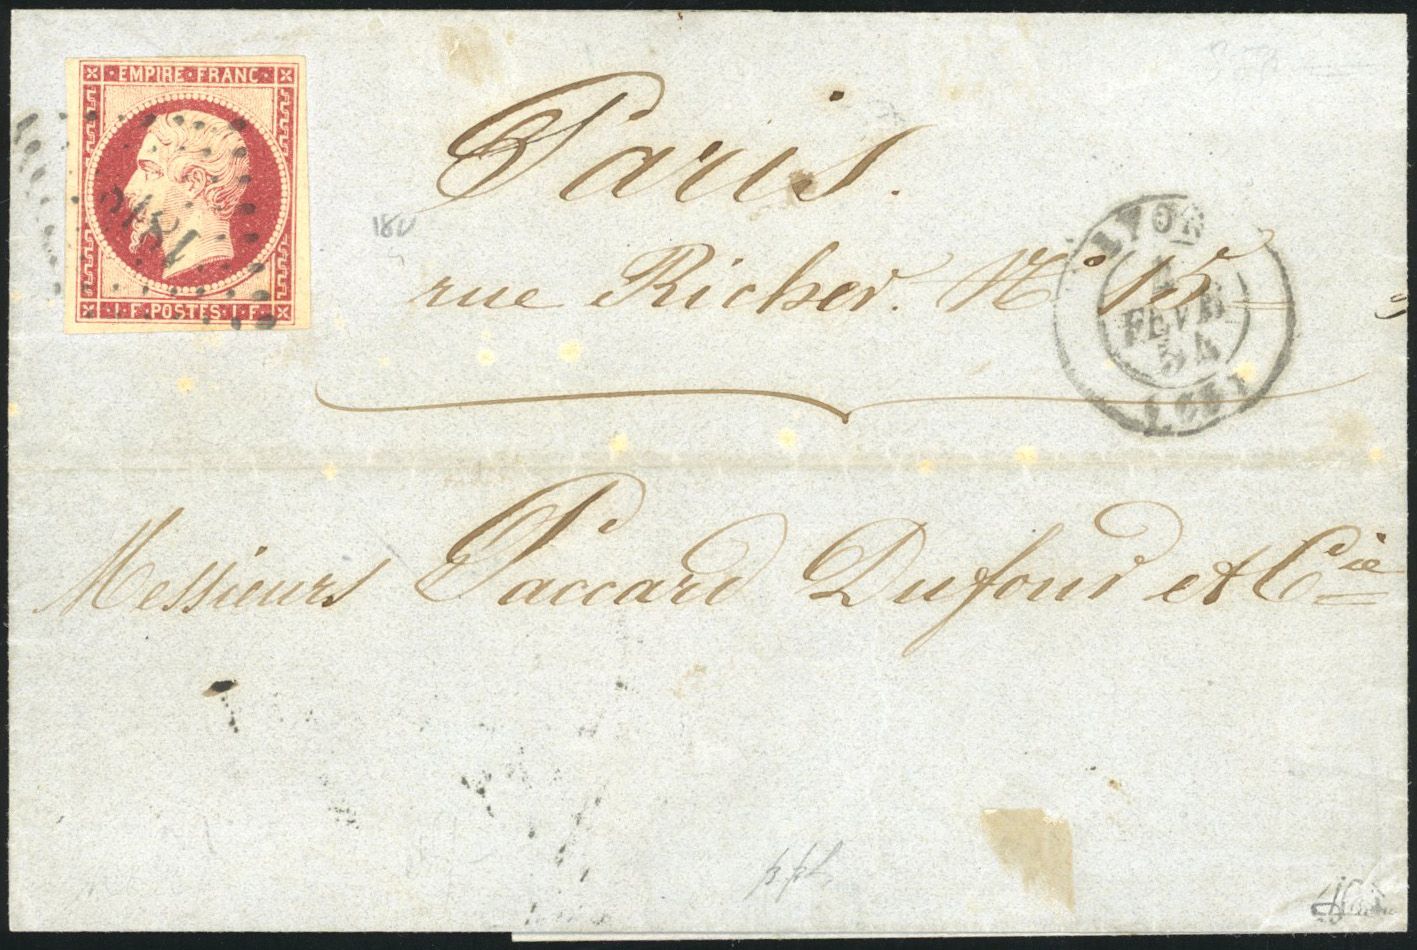 EMPIRE FRANC
1 · F · POSTES · 1 · F
1818
Paris.
180
rue Richer. N° 15
LYON
1
FEVR.
54
(68)
Messieurs Paccard Dufour et Cie